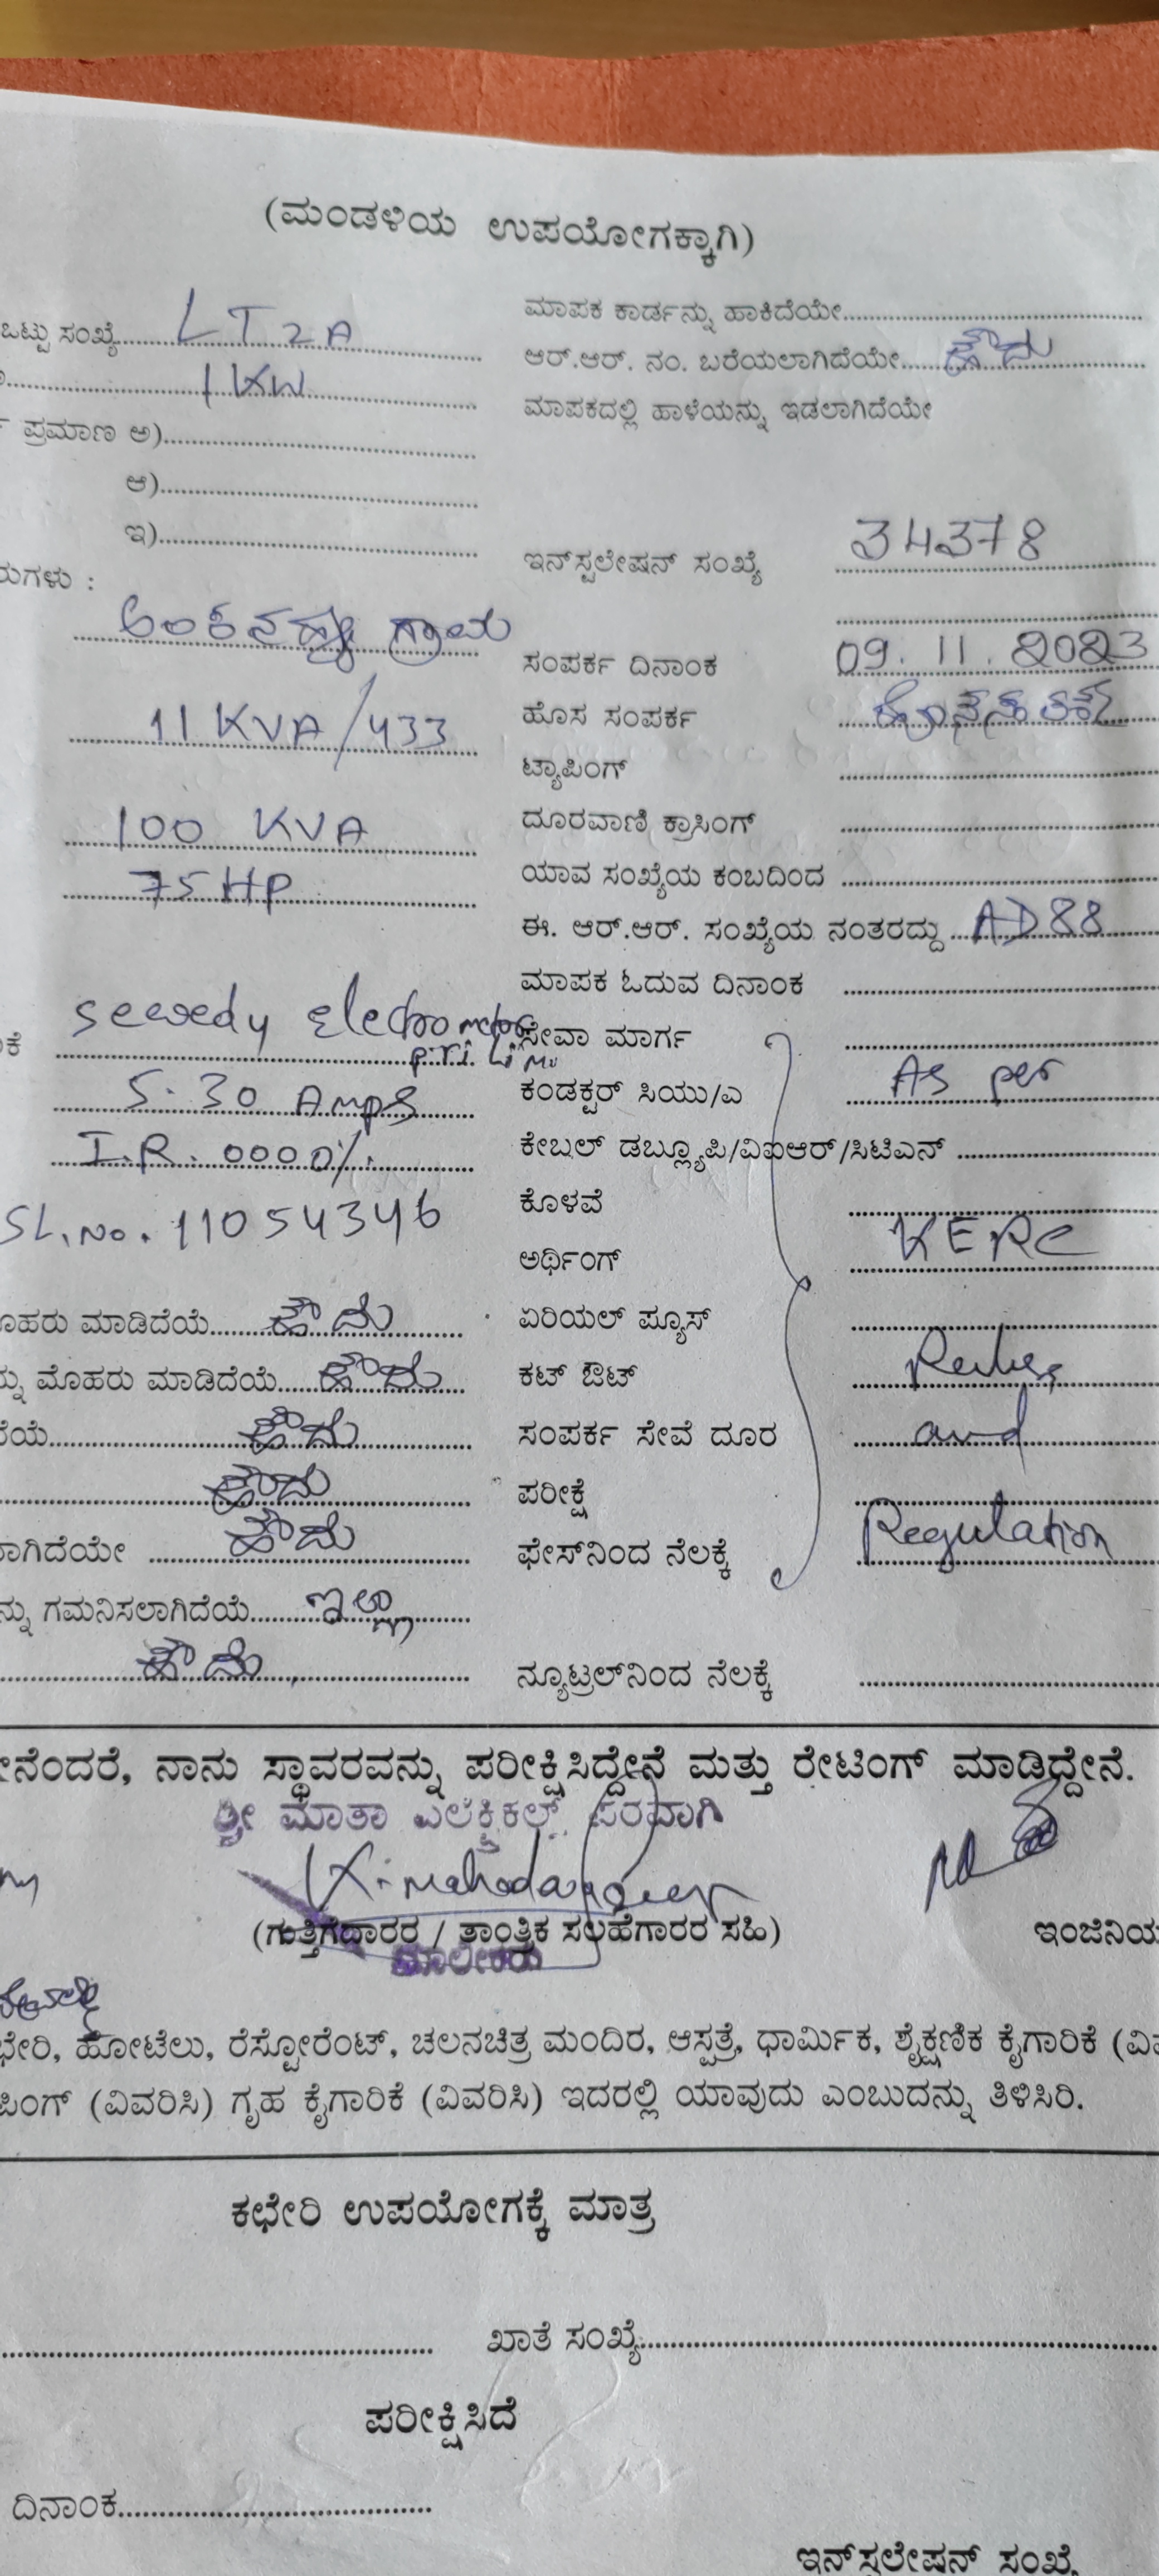 (ಮಂಡಳಿಯ ಉಪಯೋಗಕ್ಕಾಗಿ)
ಒಟ್ಟು ಸಂಖ್ಯೆ LT 2A
1 KW
ಪ್ರಮಾಣ ಅ)
ಆ)
ಇ)
ಗ್ರಾಮ
11 KVA/433
100 KVA
75 HP
Sewedy Electrometer
5-30 Amps
I.R. 0000%
SL.No. 11054346
ಮೊಹರು ಮಾಡಿದೆಯೆ ಹೌದು
ಮೊಹರು ಮಾಡಿದೆಯೆ ಹೌದು
ಹೌದು
ಹೌದು
ಹೌದು
ಗಮನಿಸಲಾಗಿದೆಯೆ ಇಲ್ಲ
ಹೌದು
ಮಾಪಕ ಕಾರ್ಡನ್ನು ಹಾಕಿದೆಯೇ
ಆರ್.ಆರ್. ನಂ. ಬರೆಯಲಾಗಿದೆಯೇ ಹೌದು
ಮಾಪಕದಲ್ಲಿ ಹಾಳೆಯನ್ನು ಇಡಲಾಗಿದೆಯೇ
ಇನ್‌ಸ್ಟಲೇಷನ್ ಸಂಖ್ಯೆ 34378
ಸಂಪರ್ಕ ದಿನಾಂಕ 09.11.2023
ಹೊಸ ಸಂಪರ್ಕ
ಟ್ಯಾಪಿಂಗ್
ದೂರವಾಣಿ ಕ್ರಾಸಿಂಗ್
ಯಾವ ಸಂಖ್ಯೆಯ ಕಂಬದಿಂದ
ಈ. ಆರ್.ಆರ್. ಸಂಖ್ಯೆಯ ನಂತರದ್ದು AD88
ಮಾಪಕ ಓದುವ ದಿನಾಂಕ
ಸೇವಾ ಮಾರ್ಗ
ಕಂಡಕ್ಟರ್ ಸಿಯು/ಎ As per
ಕೇಬಲ್ ಡಬ್ಲ್ಯೂಪಿ/ವಿಐಆರ್/ಸಿಟಿಎನ್
ಕೊಳವೆ
ಅರ್ಥಿಂಗ್ KERC
ಏರಿಯಲ್ ಫ್ಯೂಸ್
ಕಟ್ ಔಟ್
ಸಂಪರ್ಕ ಸೇವೆ ದೂರ and
ಪರೀಕ್ಷೆ
ಫೇಸ್‌ನಿಂದ ನೆಲಕ್ಕೆ Regulation
ನ್ಯೂಟ್ರಲ್‌ನಿಂದ ನೆಲಕ್ಕೆ
ನಾನು ಸ್ಥಾವರವನ್ನು ಪರೀಕ್ಷಿಸಿದ್ದೇನೆ ಮತ್ತು ರೇಟಿಂಗ್ ಮಾಡಿದ್ದೇನೆ.
ಶ್ರೀ ಮಾತಾ ಎಲೆಕ್ಟ್ರಿಕಲ್ಸ್ ಪರವಾಗಿ
(ಗುತ್ತಿಗೆದಾರರ / ತಾಂತ್ರಿಕ ಸಲಹೆಗಾರರ ಸಹಿ)
ಮಾಲೀಕರು
ಹೋಟೆಲು, ರೆಸ್ಟೋರೆಂಟ್, ಚಲನಚಿತ್ರ ಮಂದಿರ, ಆಸ್ಪತ್ರೆ, ಧಾರ್ಮಿಕ, ಶೈಕ್ಷಣಿಕ ಕೈಗಾರಿಕೆ
(ವಿವರಿಸಿ) ಗೃಹ ಕೈಗಾರಿಕೆ (ವಿವರಿಸಿ) ಇದರಲ್ಲಿ ಯಾವುದು ಎಂಬುದನ್ನು ತಿಳಿಸಿರಿ.
ಕಛೇರಿ ಉಪಯೋಗಕ್ಕೆ ಮಾತ್ರ
ಖಾತೆ ಸಂಖ್ಯೆ
ಪರೀಕ್ಷಿಸಿದೆ
ದಿನಾಂಕ
ಇನ್‌ಸ್ಟಲೇಷನ್ ಸಂಖ್ಯೆ